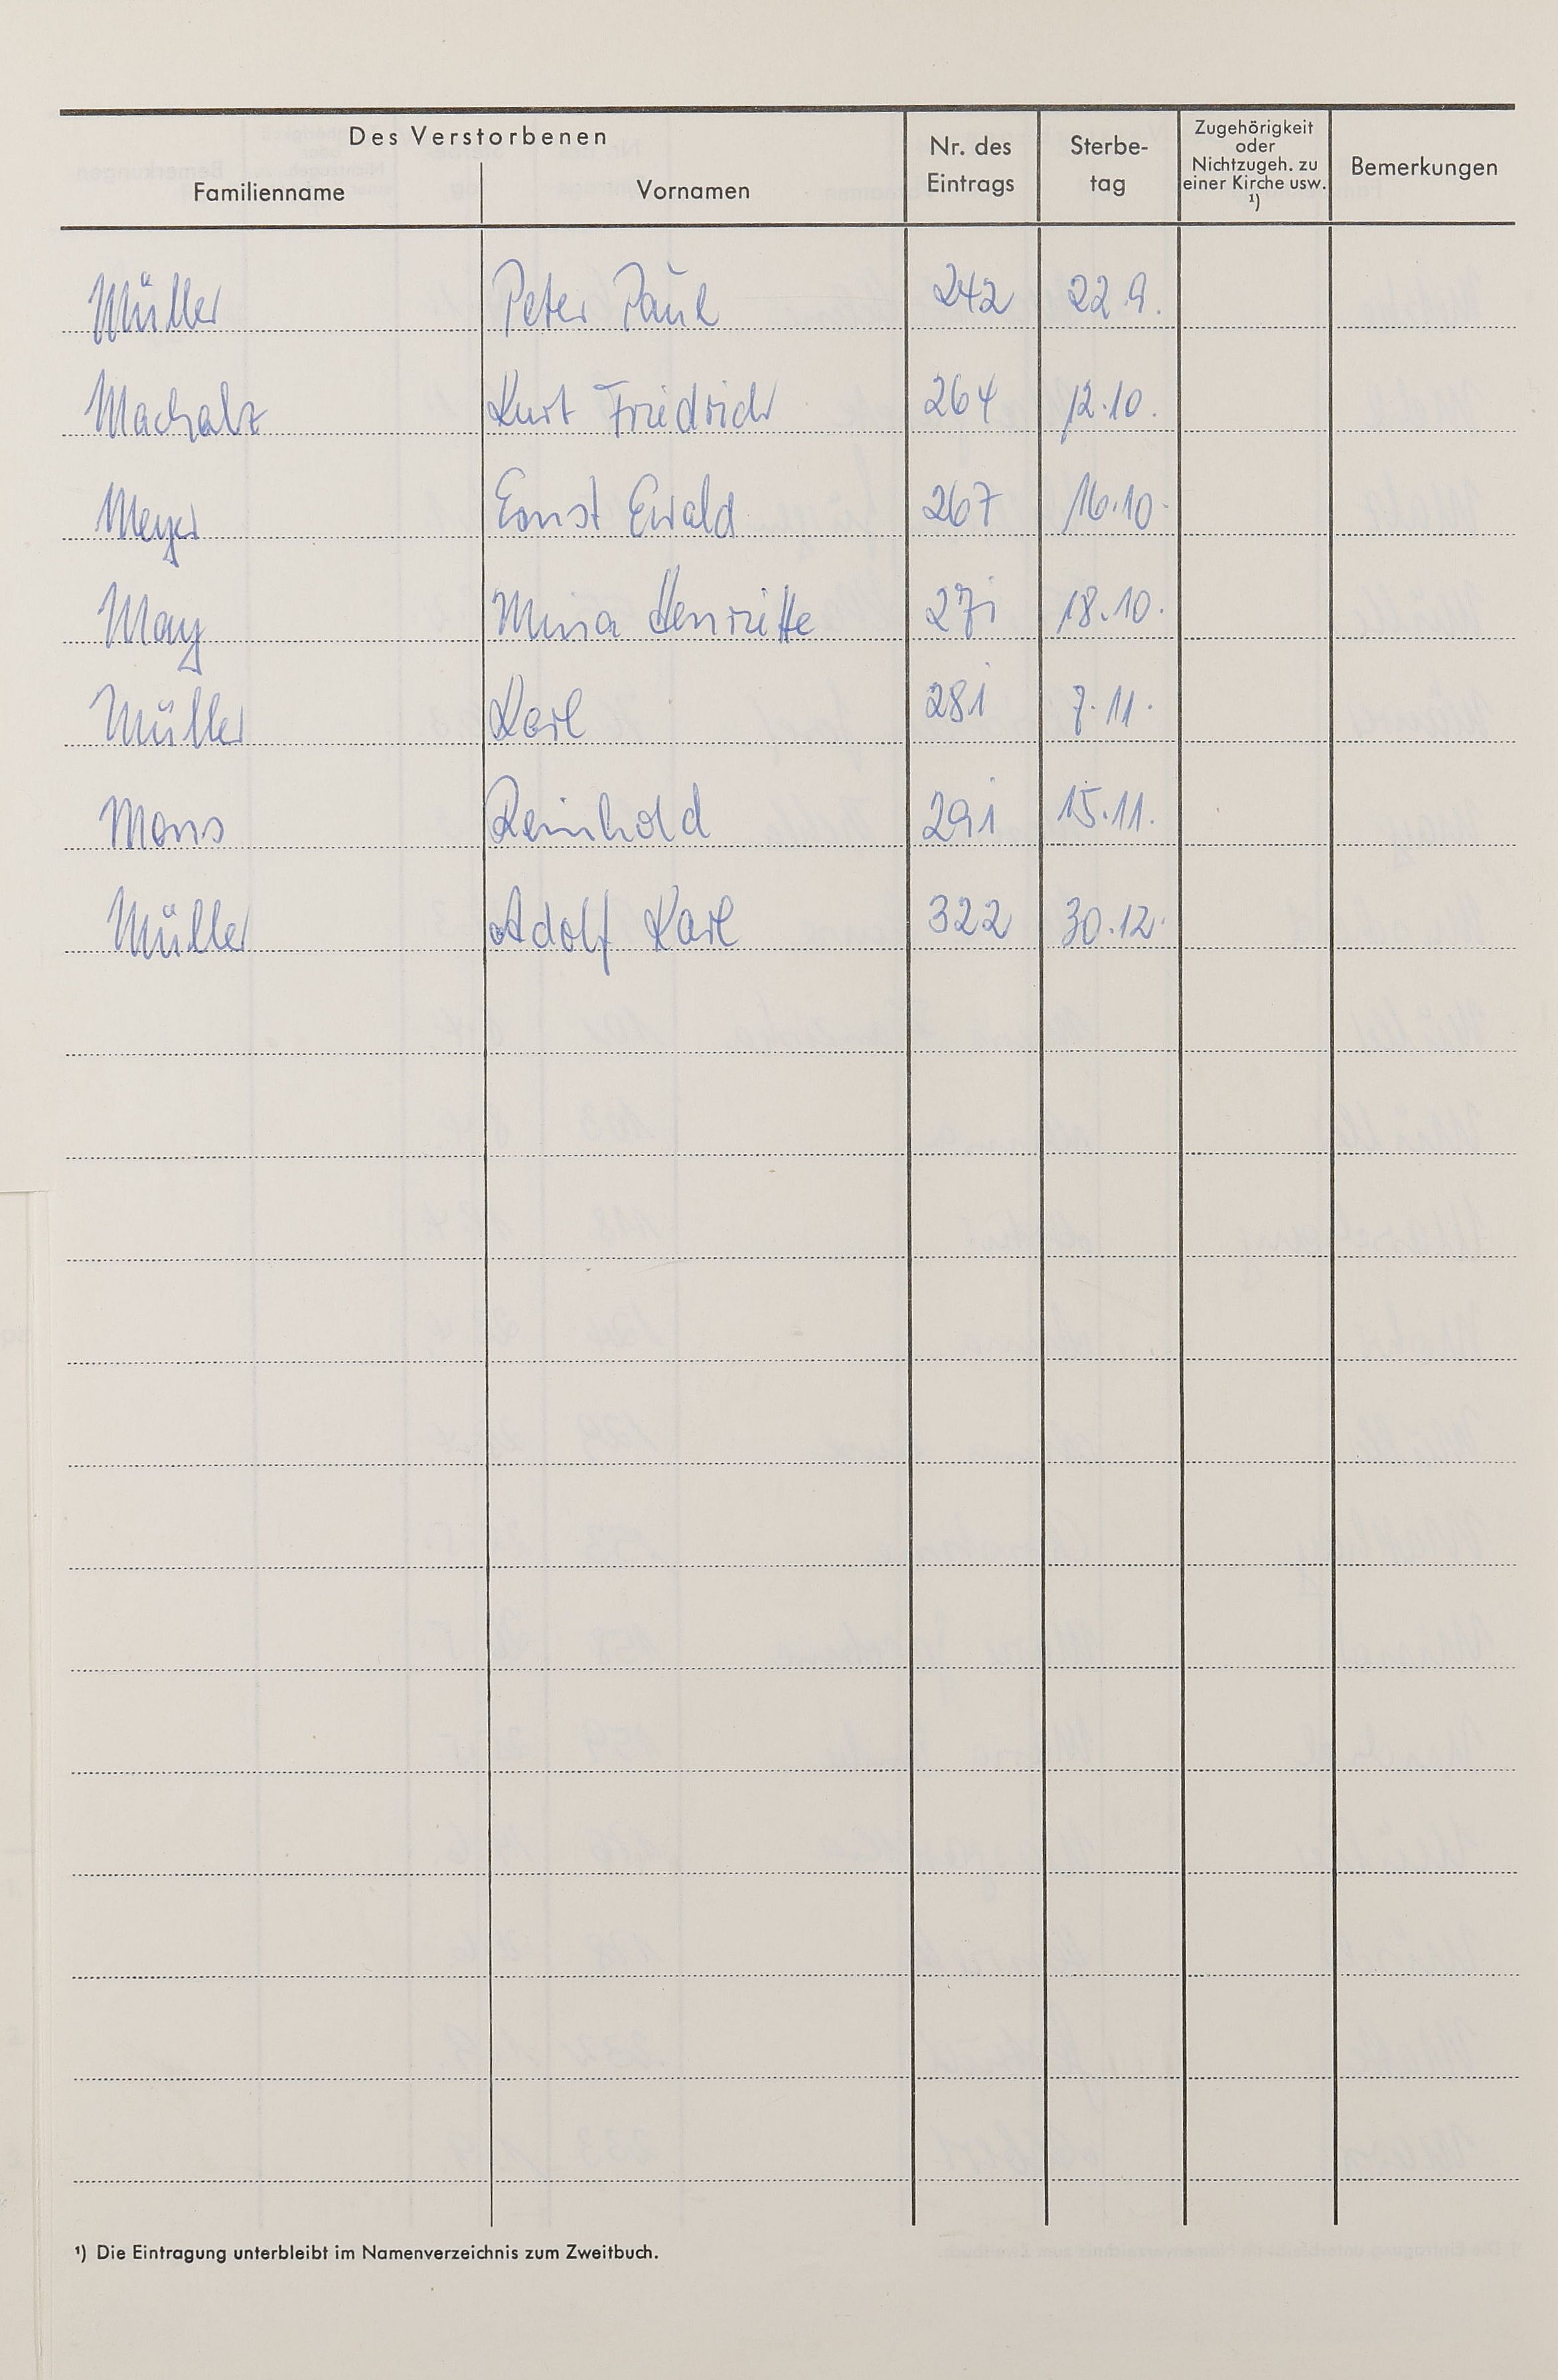 Des Verstorbenen
Familienname Vornamen Nr. des Eintrags Sterbe-tag Zugehörigkeit oder Nichtzugeh. zu einer Kirche usw. ¹) Bemerkungen
Müller Peter Paul 242 22.9.
Kurt Friedrich 264 12.10.
Meyer Ernst Ewald 267 16.10.
May Mina Henriette 271 18.10.
Müller Karl 281 7.11.
Mons Reinhold 291 15.11.
Müller Adolf Karl 322 30.12.
¹) Die Eintragung unterbleibt im Namenverzeichnis zum Zweitbuch.